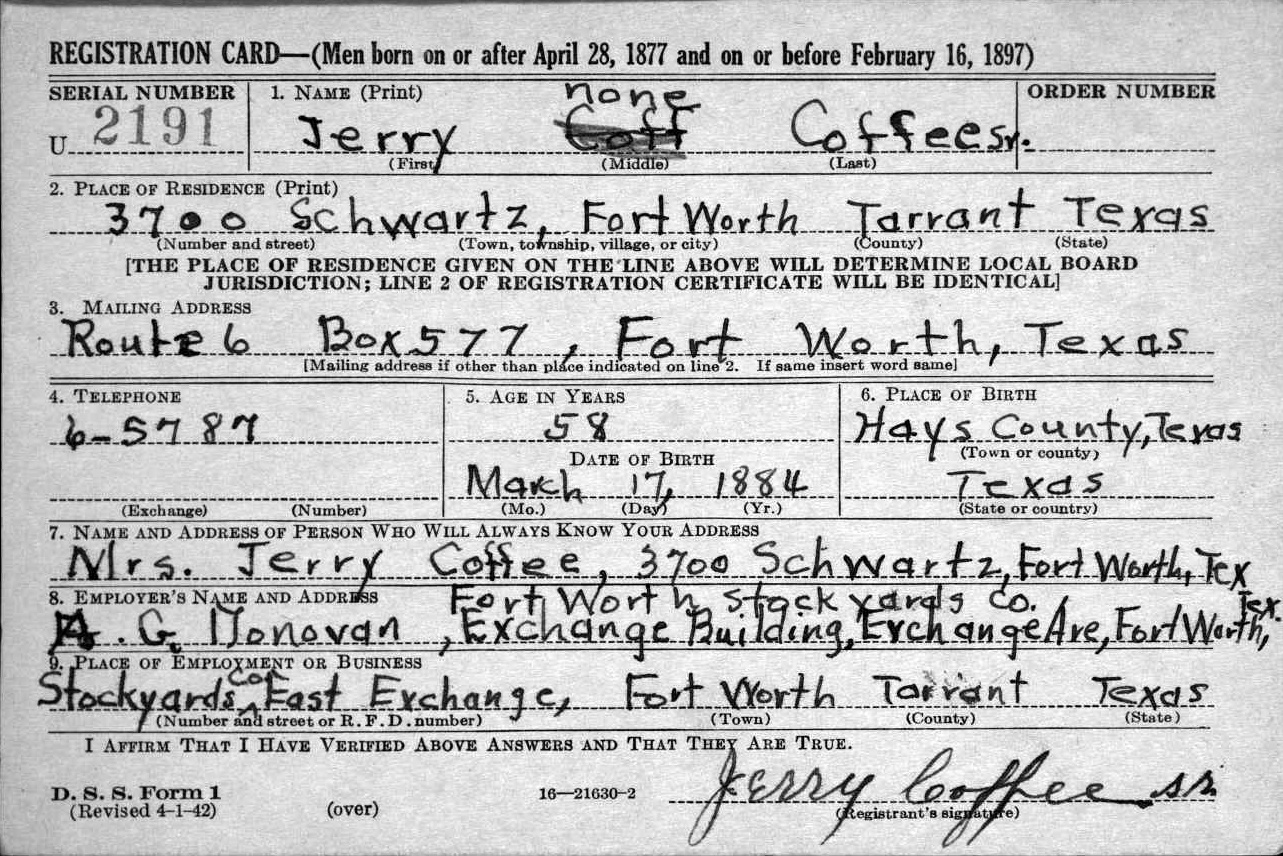 REGISTRATION CARD—(Men born on or after April 28, 1877 and on or before February 16, 1897)
SERIAL NUMBER 1. NAME (Print) none ORDER NUMBER
U 2191 Jerry Coff Coffee sr.
(First) (Middle) (Last)
2. PLACE OF RESIDENCE (Print)
3700 Schwartz, Fort Worth Tarrant Texas
(Number and street) (Town, township, village, or city) (County) (State)
[THE PLACE OF RESIDENCE GIVEN ON THE LINE ABOVE WILL DETERMINE LOCAL BOARD
JURISDICTION; LINE 2 OF REGISTRATION CERTIFICATE WILL BE IDENTICAL]
3. MAILING ADDRESS
Route 6 Box 577, Fort Worth, Texas
[Mailing address if other than place indicated on line 2. If same insert word same]
4. TELEPHONE 5. AGE IN YEARS 6. PLACE OF BIRTH
6-5787 58 Hays County, Texas
DATE OF BIRTH (Town or county)
March 17, 1884 Texas
(Exchange) (Number) (Mo.) (Day) (Yr.) (State or country)
7. NAME AND ADDRESS OF PERSON WHO WILL ALWAYS KNOW YOUR ADDRESS
Mrs. Jerry Coffee, 3700 Schwartz, Fort Worth, Tex
8. EMPLOYER'S NAME AND ADDRESS Fort Worth stock yards Co.
A. G. Donovan, Exchange Building, Exchange Ave, Fort Worth, Tex.
9. PLACE OF EMPLOYMENT OR BUSINESS
Stockyards Co. East Exchange, Fort Worth Tarrant Texas
(Number and street or R. F. D. number) (Town) (County) (State)
I AFFIRM THAT I HAVE VERIFIED ABOVE ANSWERS AND THAT THEY ARE TRUE.
D. S. S. Form 1 16—21630-2 Jerry Coffee sr.
(Revised 4-1-42) (over) (Registrant's signature)